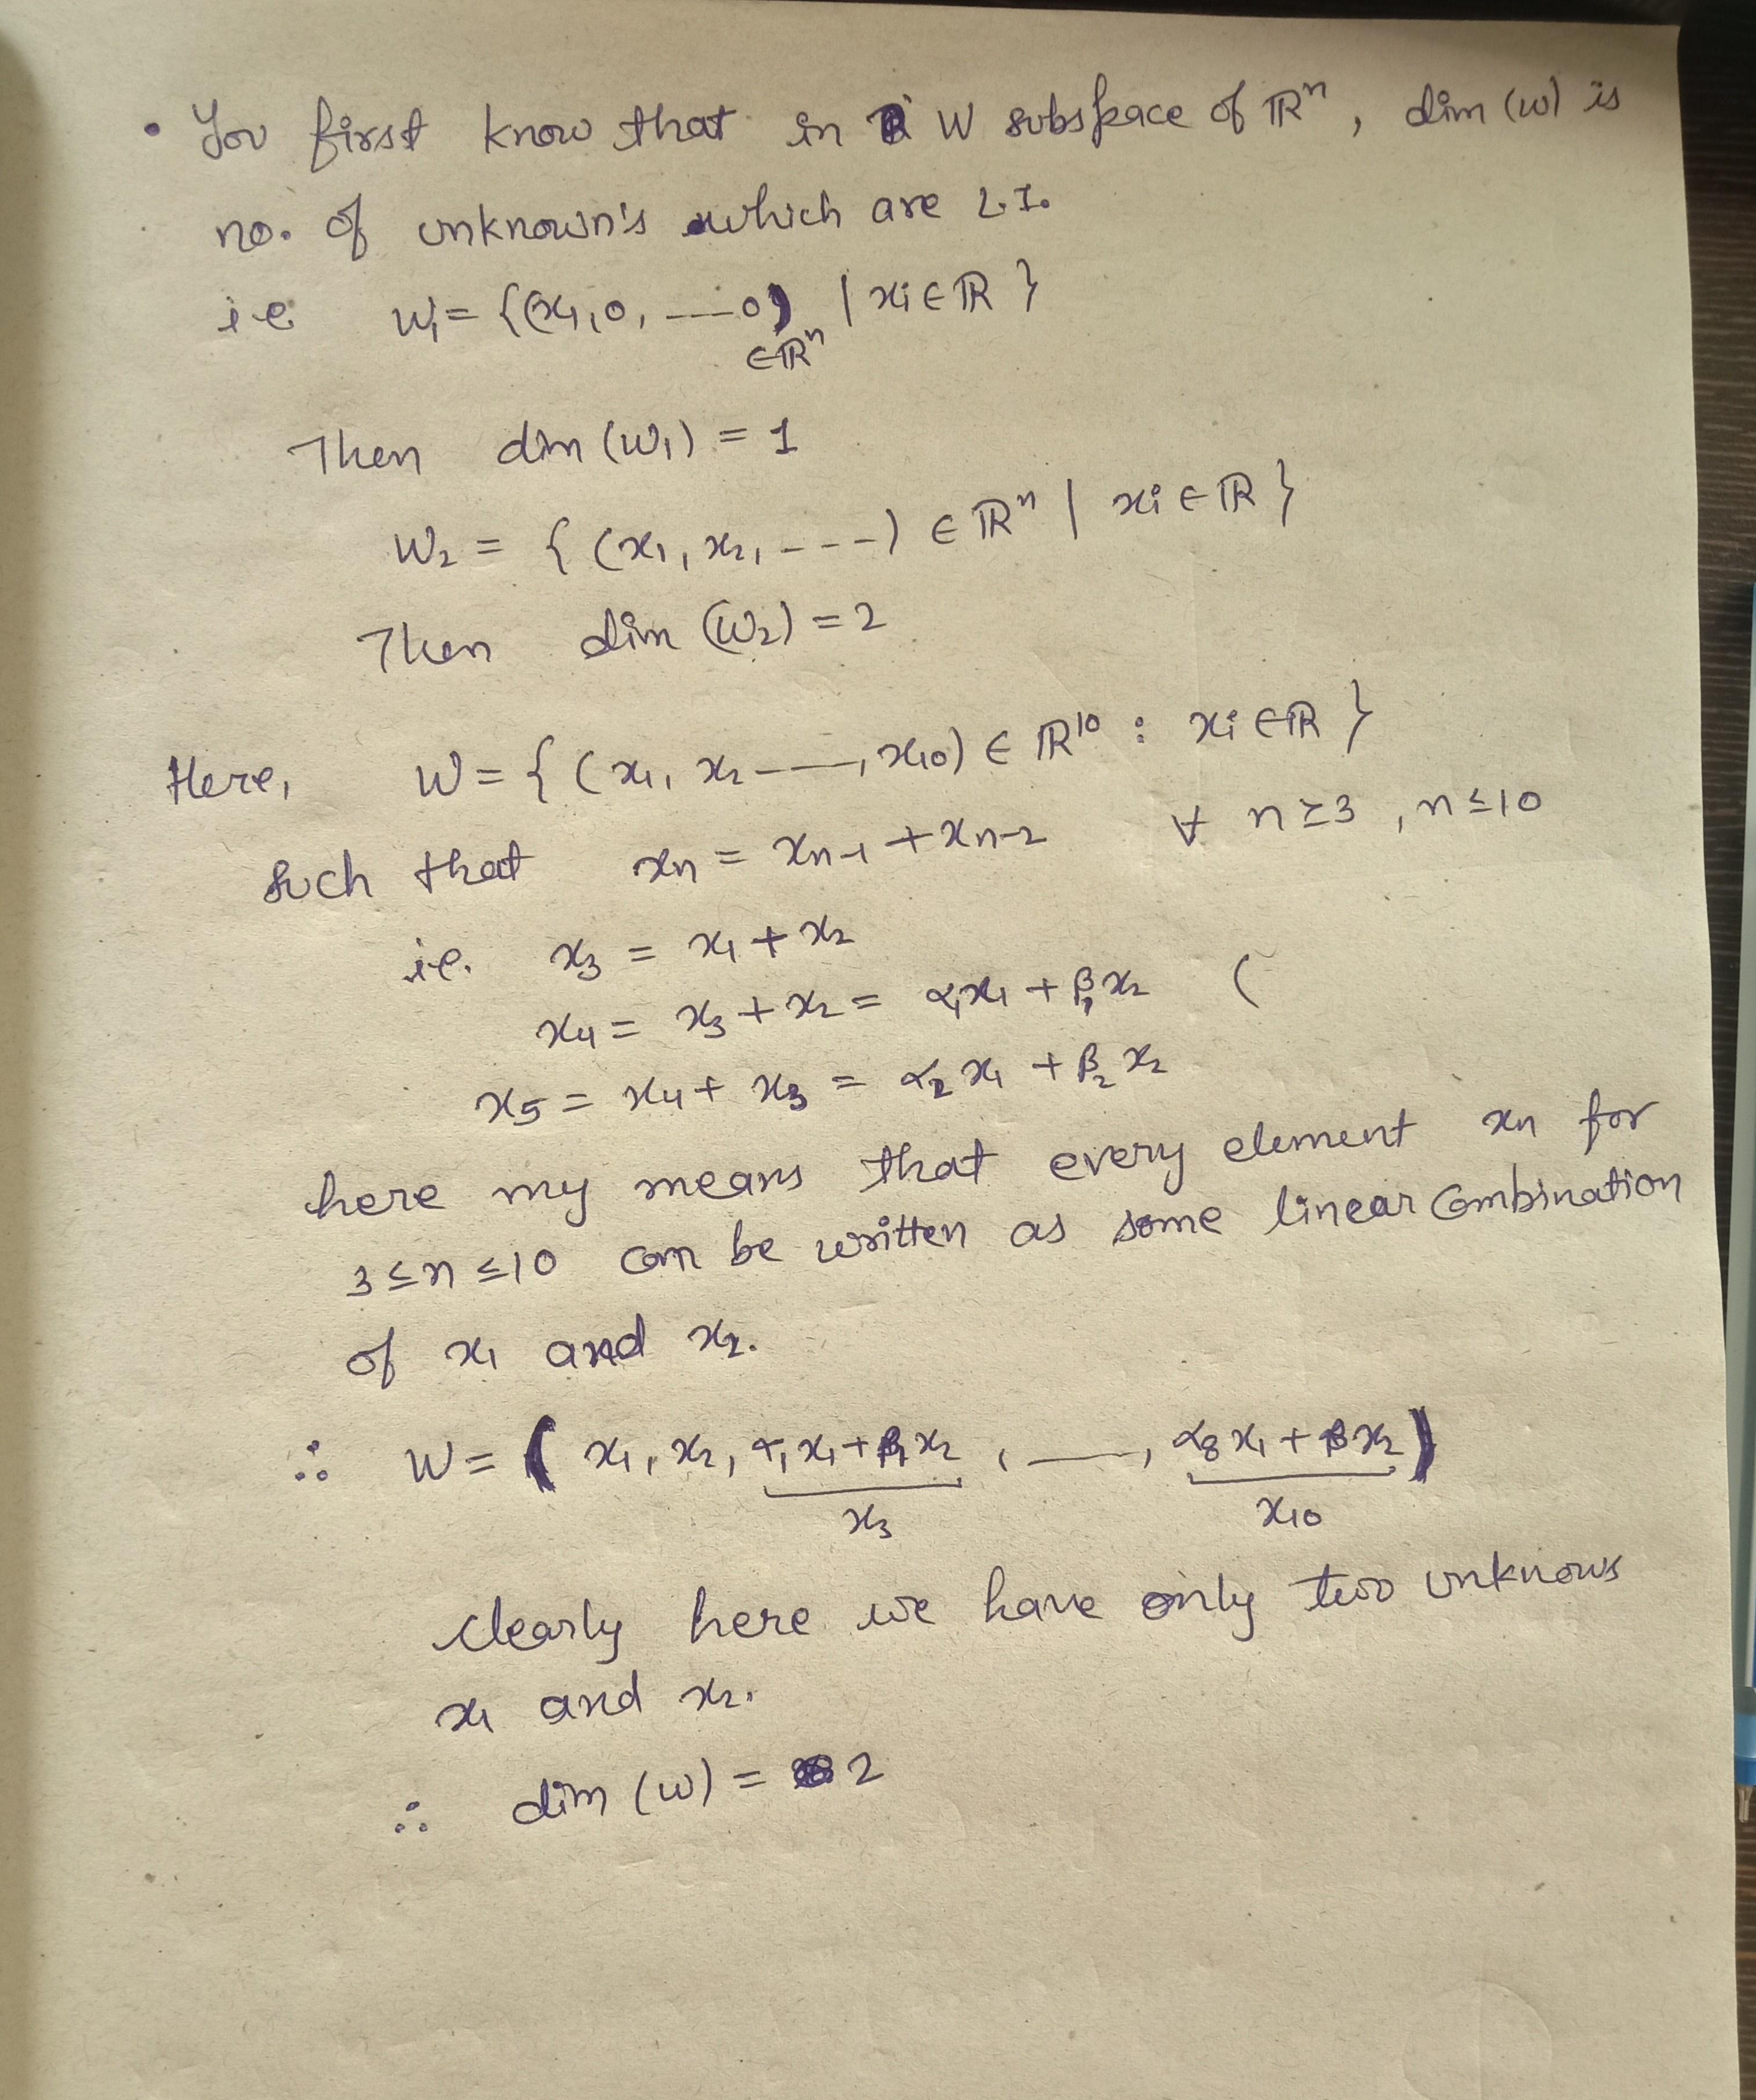 • You first know that in W subspace of ℝⁿ, dim (W) is
no. of unknown's which are L.I.
i.e. W₁ = {(x₁, 0, ---0) | xi ∈ ℝ }
∈ ℝⁿ
Then dim (W₁) = 1
W₂ = { (x₁, x₂, ----) ∈ ℝⁿ | xi ∈ ℝ }
Then dim (W₂) = 2
Here, W = { (x₁, x₂ ---, x₁₀) ∈ ℝ¹⁰ : xi ∈ ℝ }
such that xₙ = xₙ₋₁ + xₙ₋₂ ∀ n ≥ 3, n ≤ 10
i.e. x₃ = x₁ + x₂
x₄ = x₃ + x₂ = α₁x₁ + β₁x₂ (
x₅ = x₄ + x₃ = α₂x₁ + β₂x₂
here my means that every element xₙ for
3 ≤ n ≤ 10 can be written as some linear combination
of x₁ and x₂.
∴ W = ( x₁, x₂, α₁x₁ + β₁x₂, ---, α₈x₁ + βx₂ )
x₃ x₁₀
clearly here we have only two unknows
x₁ and x₂.
∴ dim (W) = 2